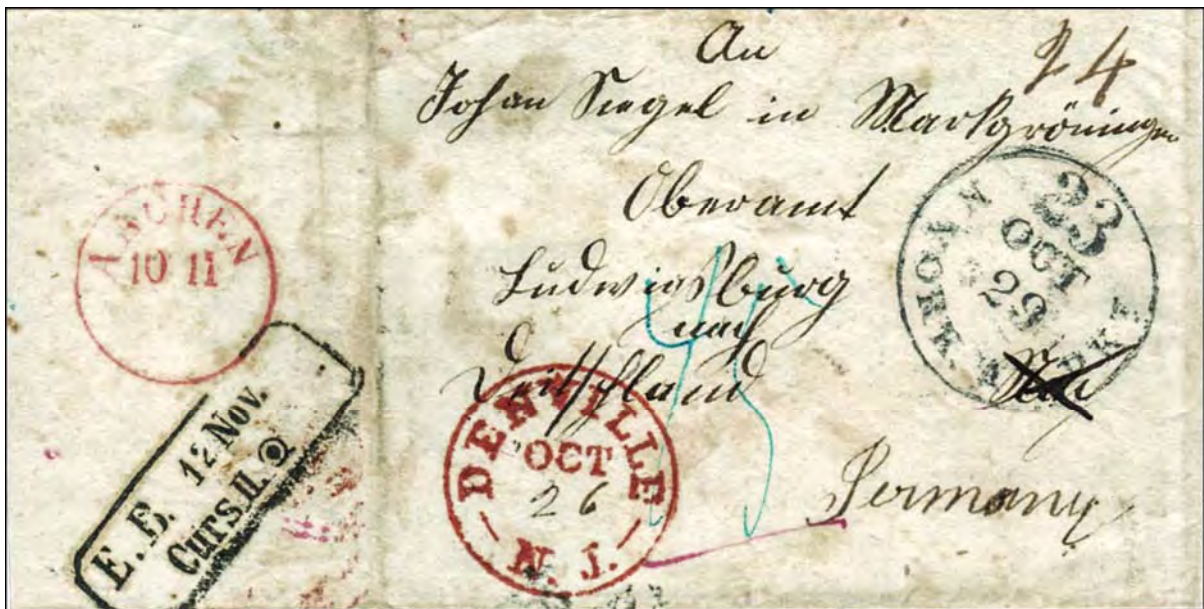 An
24
Johan Siegel in Markgröningen
Oberamt
Ludwigsburg
nach
Deitschland
Germany
AACHEN
10 11
E. B. 12 Nov.
Curs II.
DENVILLE
OCT
26
N. J.
NEW YORK AM. PKT
23
OCT
29
45